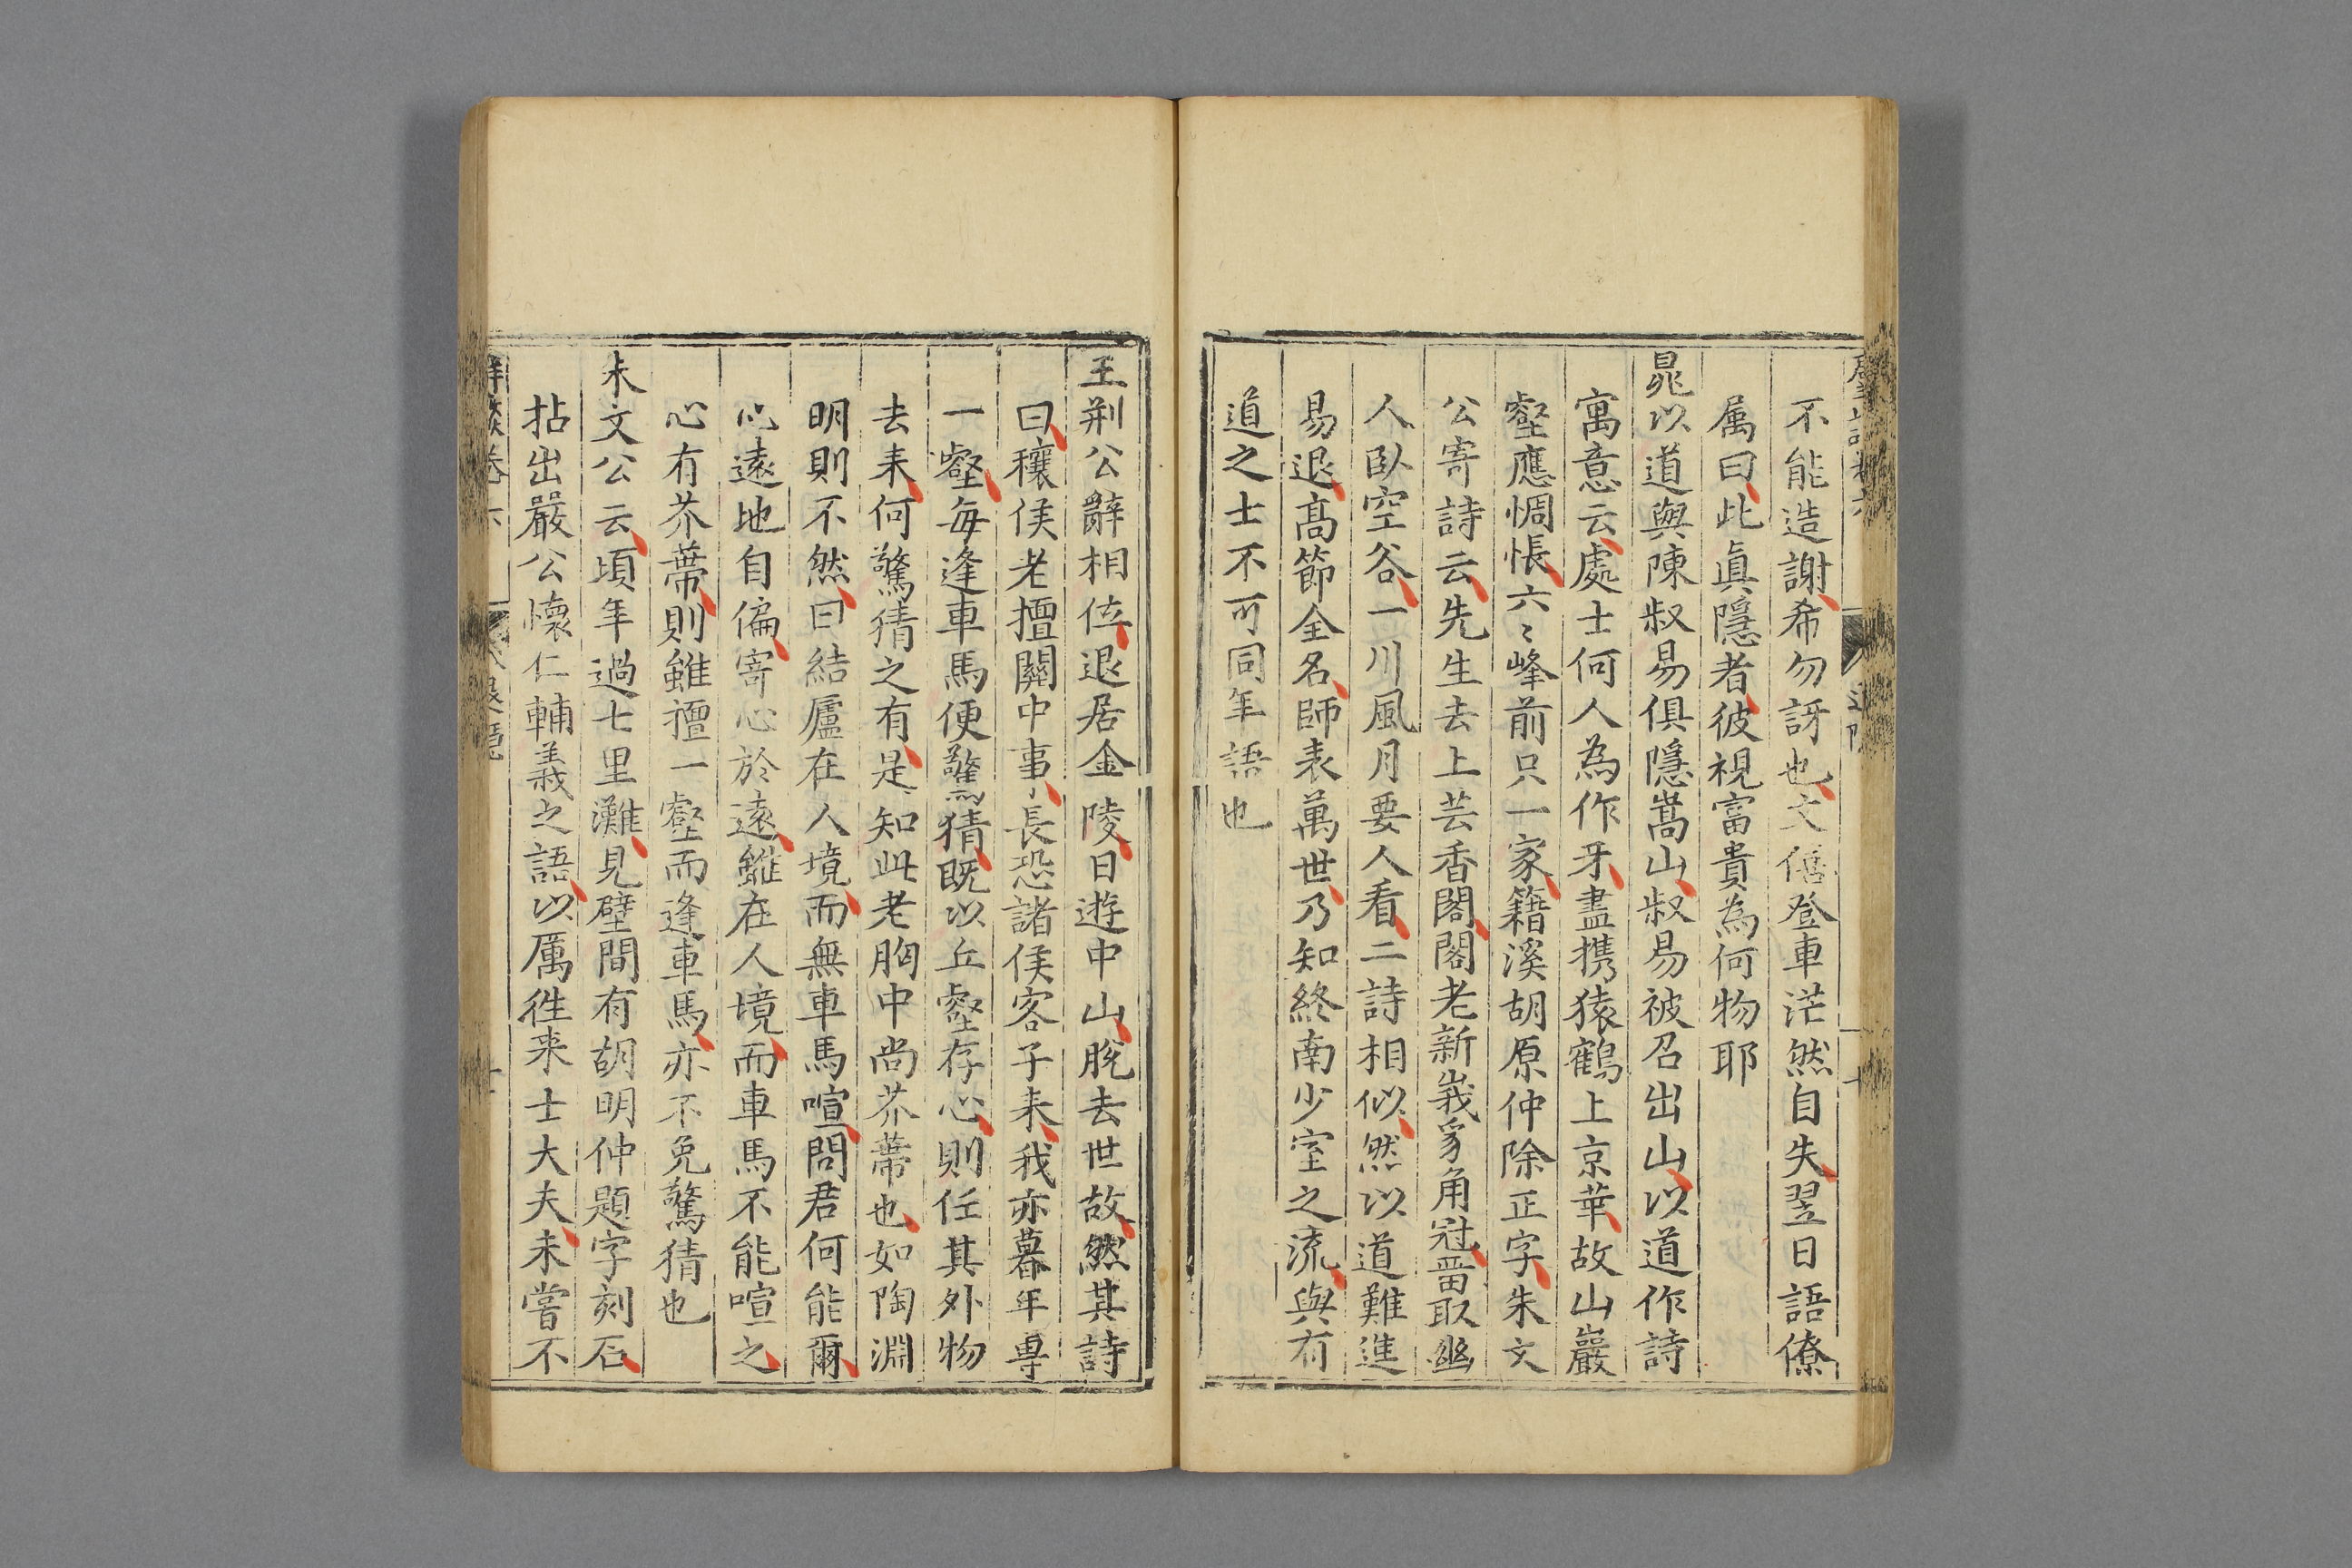 不能造謝希勿訝也文僖登車茫然自失翌日語僚
属曰此眞隱者彼視富貴為何物耶
晁以道與陳叔易俱隱嵩山叔易被召出山以道作詩
寓意云處士何人為作牙盡携猿鶴上京華故山巖
壑應惆悵六〻峰前只一家籍溪胡原仲除正字朱文
公寄詩云先生去上芸香閣閣老新峩豸角冠畱取幽
人臥空谷一川風月要人看二詩相似然以道難進
易退高節全名師表萬世乃知終南少室之流與有
道之士不可同年語也
王荆公辭相位退居金陵日遊中山脫去世故然其詩
曰穰侯老擅關中事長恐諸侯客子来我亦暮年專
一壑每逢車馬便驚猜既以丘壑存心則任其外物
去来何驚猜之有是知此老胸中尚芥蔕也如陶淵
明則不然曰結廬在人境而無車馬喧問君何能爾
心遠地自偏寄心於遠雖在人境而車馬不能喧之
心有芥蔕則雖擅一壑而逢車馬亦不免驚猜也
朱文公云頃年過七里灘見壁間有胡明仲題字刻石
拈出嚴公懷仁輔義之語以厲徃来士大夫未嘗不